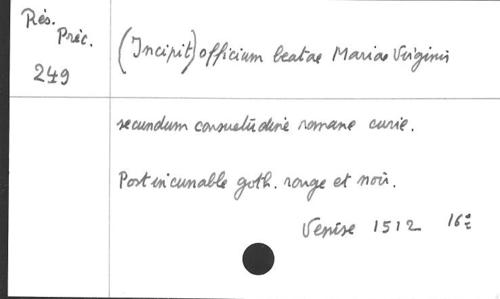 Rés.
Préc.
249
(Incipit) officium beatae Mariae Virginis
secundum consuetūdinē romane curie.
Post incunable goth. rouge et noir.
Venise 1512 16º